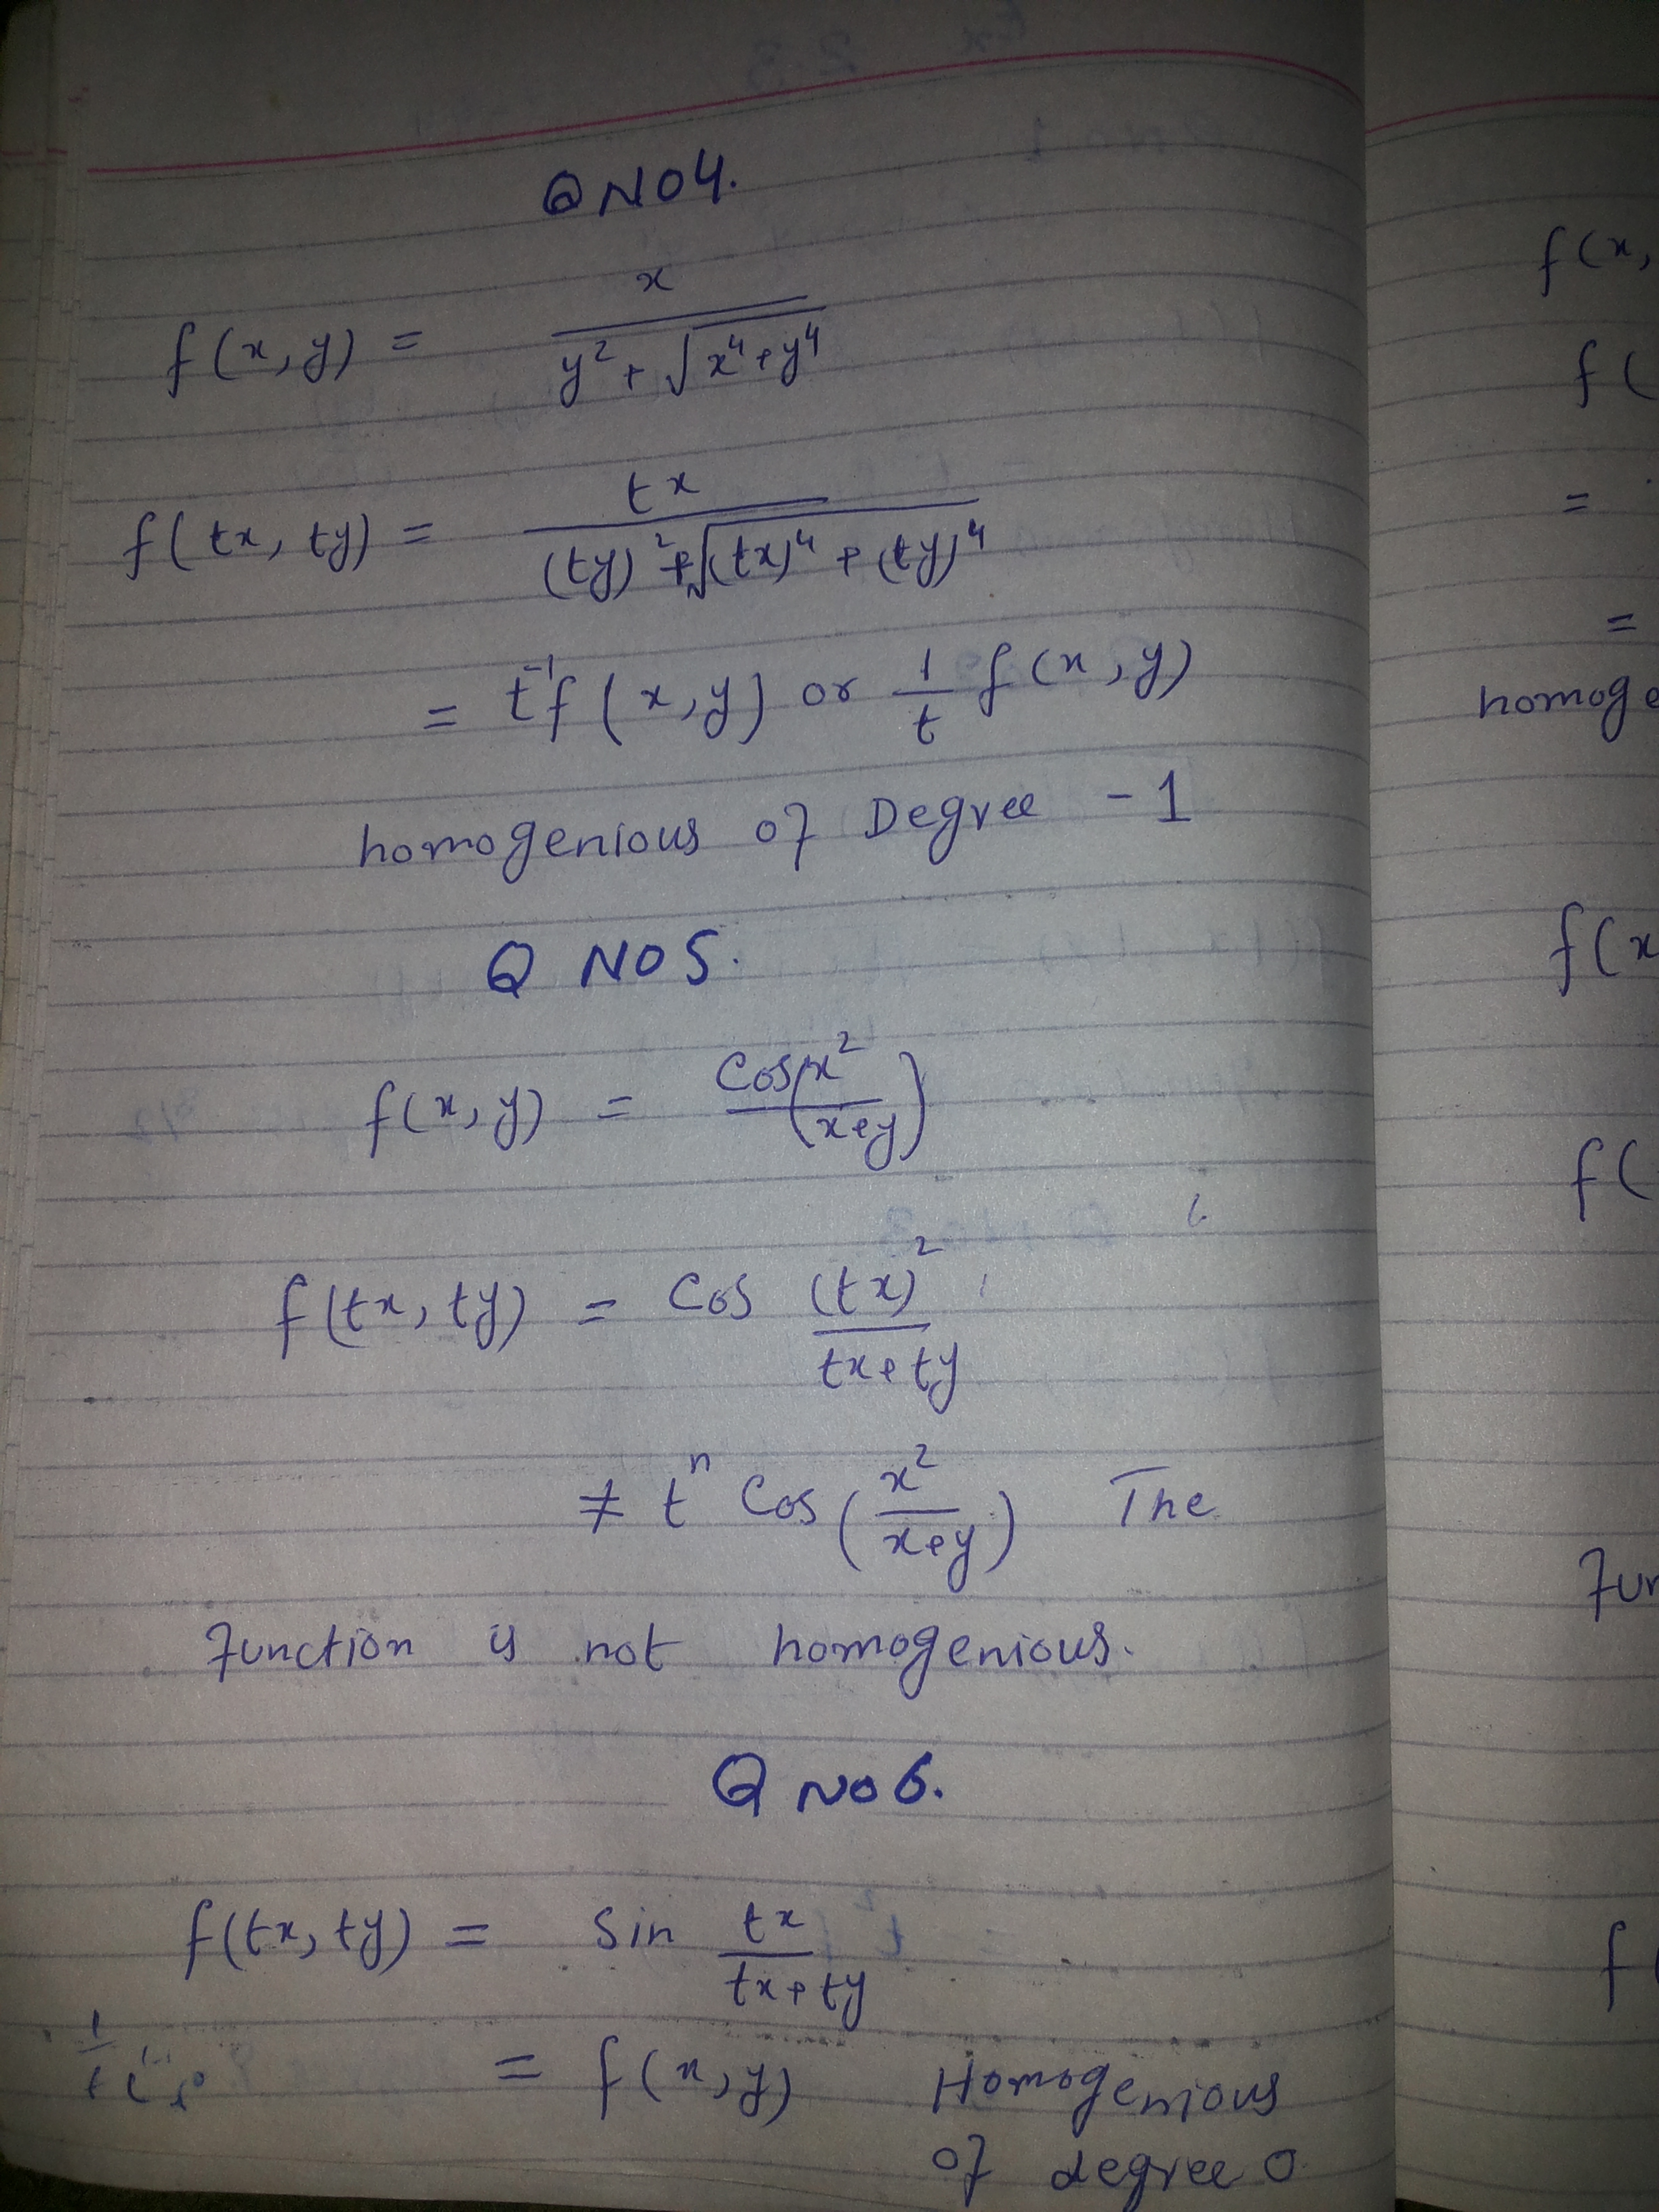 Q NO 4.
f(x,y) = x / (y² + √(x⁴+y⁴))
f(tx, ty) = tx / ((ty)² + √((tx)⁴ + (ty)⁴))
= t⁻¹f(x,y) or 1/t f(x,y)
homogenious of Degree -1
Q NO 5.
f(x,y) = Cos(x²/(x+y))
f(tx, ty) = Cos (tx)²/(tx+ty)
≠ tⁿ Cos(x²/(x+y)) The
Function is not homogenious.
Q NO 6.
f(tx, ty) = Sin tx/(tx+ty)
= f(x,y) Homogenious
of degree 0
f(x,
f(
=
=
f(x
f(
f(